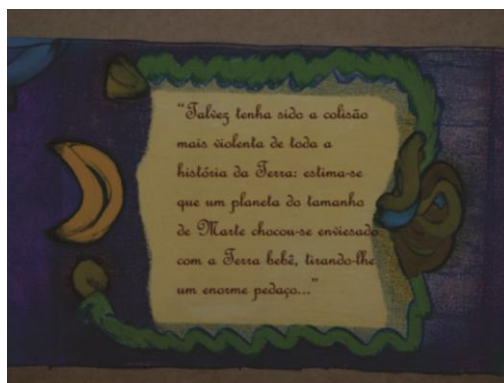 “Talvez tenha sido a colisão
mais violenta de toda a
história da Terra: estima-se
que um planeta do tamanho
de Marte chocou-se enviesado
com a Terra bebê, tirando-lhe
um enorme pedaço...”